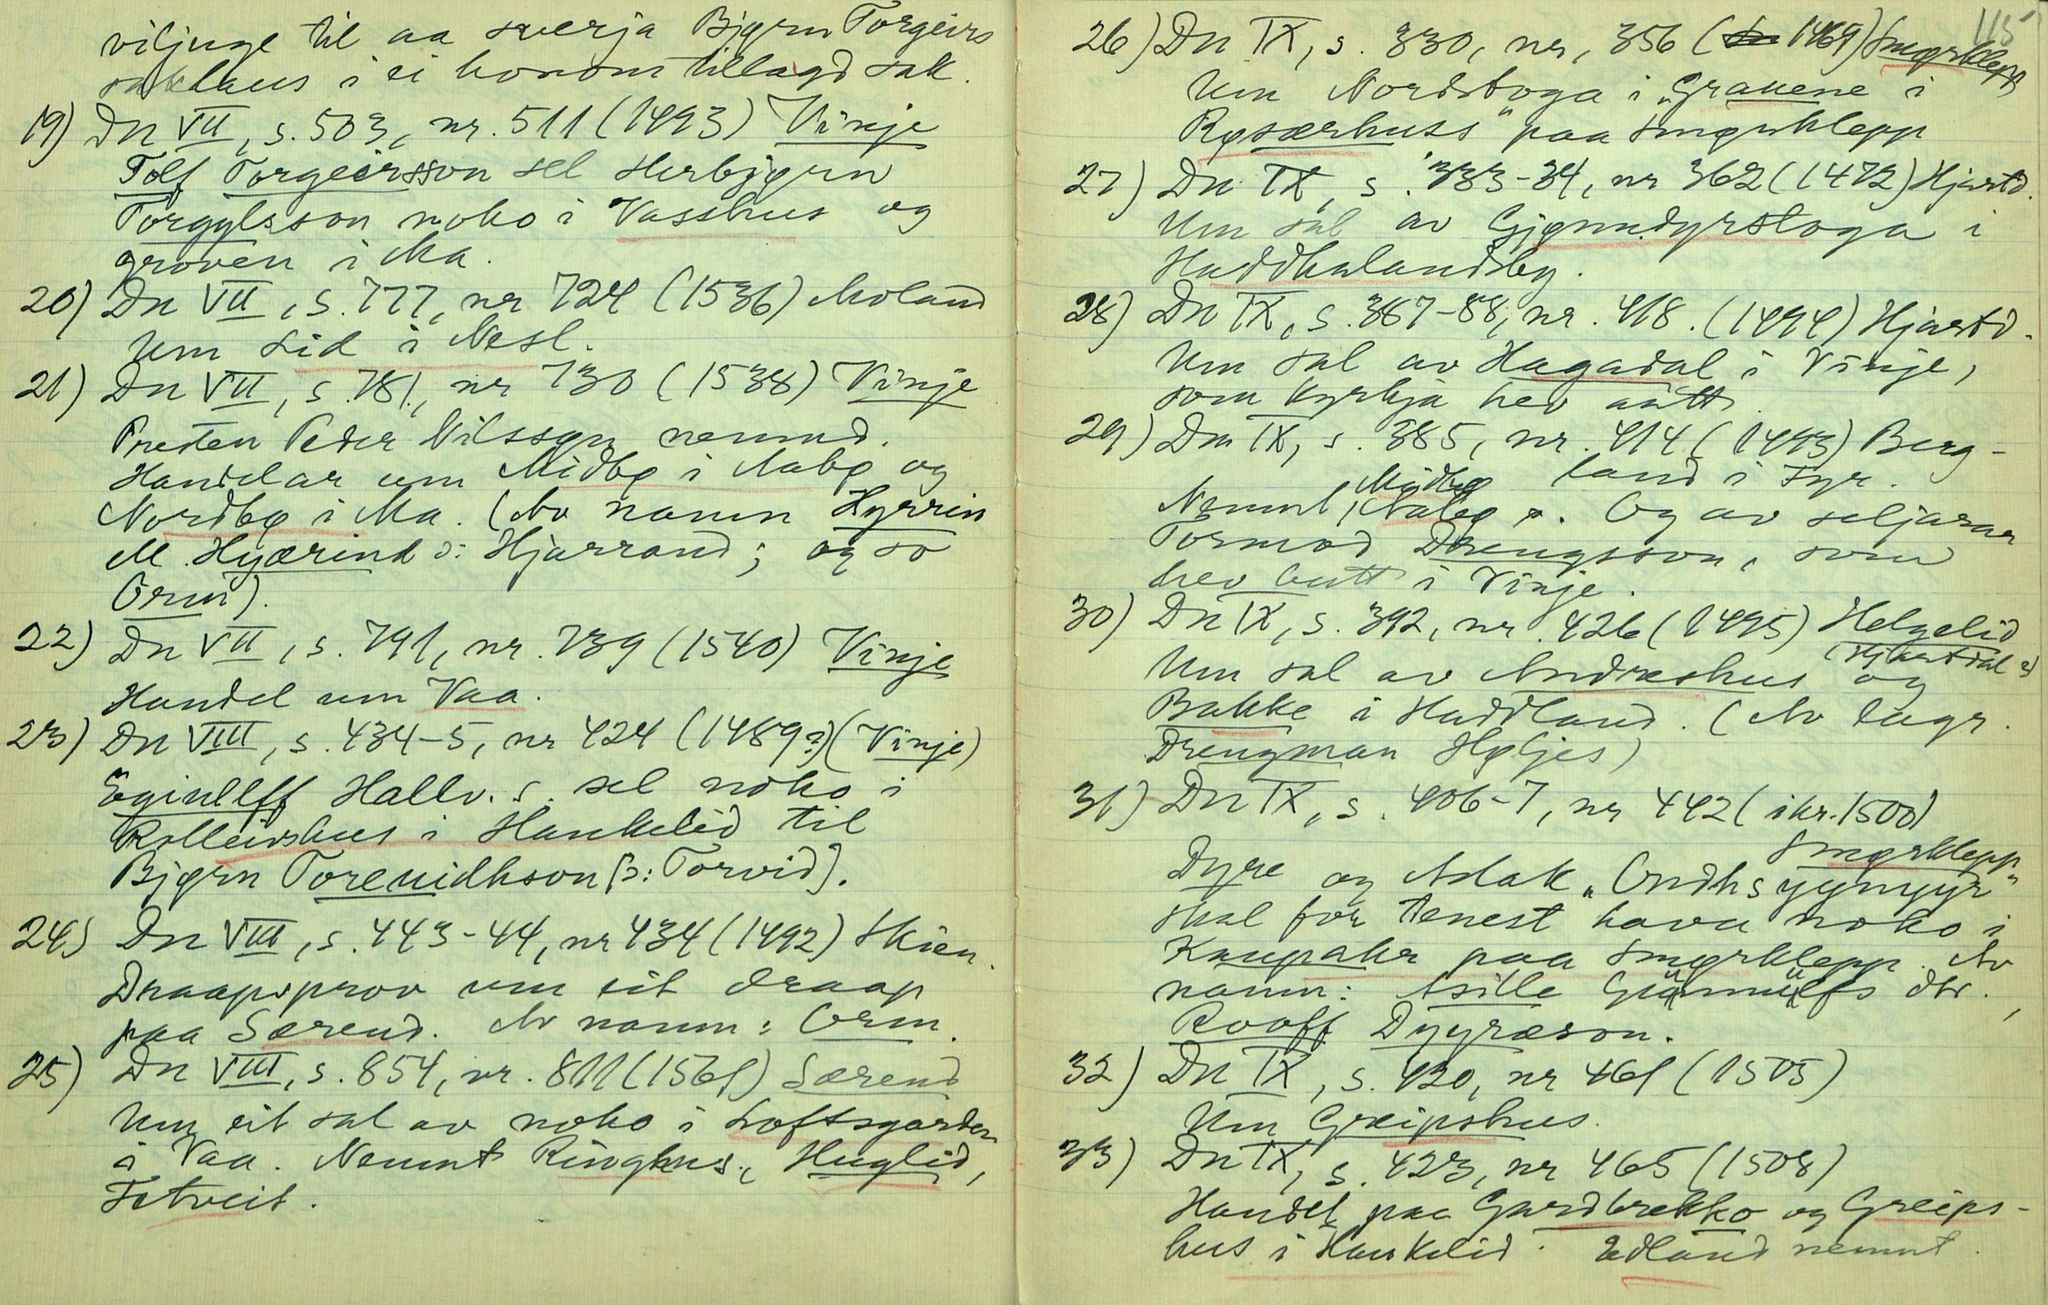 viljuge til aa sverja Bjørn Torgeirs
saklaus i ei honom tillagd sak.
19) Dn VII, s. 503, nr. 511 (1493) Vinje
Tolf Torgeirsson sel Herbjørn
Torgylsson noko i Vasshus og
Groven i Aa.
20) Dn VII, s. 777, nr 724 (1536) Moland
Um Lid i Nesl.
21) Dn VII, s. 781, nr 730 (1538) Vinje
Presten Peder Nilssøn nemnd.
Handlar um Midbø i Aabø og
Nordbø i Aa. (Av namn Hyrrin
M. Hyærind ɔ: Hjarrand; og so
Orm).
22) Dn VII, s. 791, nr. 739 (1540) Vinje
Handel um Vaa.
23) Dn VIII, s. 434-5, nr 424 (1489?) (Vinje)
Eginllff Hallv. s. sel noko i
Rolleivshus i Haukelid til
Bjørn Torevidhson [ɔ: Torvid].
24) Dn VIII, s. 443-44, nr 434 (1492) Skien.
Draapsprov um eit draap
paa Særend. Av namn: Orm.
25) Dn VIII, s. 854, nr. 811 (1561) Særend
Um eit sal av noko i Loftsgarden
i Vaa. Nemnt Ringhus, Huglid,
Fetveit.
115
26) Dn IX, s. 330, nr, 356 (1469) Smørklepp
Um Nordstoga i "Grauene i
Røsærhuss" paa Smørklepp
27) Dn IX, s. 333-34, nr 362 (1472) Hjartd.
Um sal av Gjømudyrstoga i
Haddhalandsby.
28) Dn IX, s. 387-88, nr. 418. (1494) Hjartd.
Um sal av Hagadal i Vinje,
som kyrkja hev aatt.
29) Dn IX, s. 385, nr. 414 (1493) Berg-
land i Fyr.
Nemnt, Midbø Aabø. Og av seljarar
Tormod Drengsson, som
hev butt i Vinje.
30) Dn IX, s. 392, nr. 426 (1495) Helgelid
(Hjartdal?)
Um sal av Andreshus og
Bakke i Haddland. (Av lagr.
Drengman Høljes)
31) Dn IX, s. 406-7, nr 442 (ikr. 1500)
Smørklepp
Dyre og Aslak "Ondhsygnyyr"
skal for tenest hava noko i
Kaupakr paa Smørklepp. Av
namn: Asille Gunnulfs dtr.,
Rooff Dyyræson.
32) Dn IX, s. 420, nr 461 (1505)
Um Græipshus.
33) Dn IX, s. 423, nr 465 (1508)
Handel paa Gardbrekko og Greips-
hus i Haukelid. Edland nemnt.